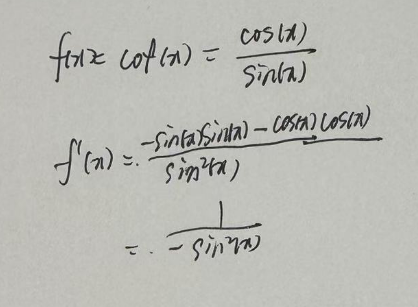 f(x) = cot(x) = cos(x) / sin(x)
f'(x) = -sin(x)sin(x) - cos(x)cos(x) / sin²(x)
= 1 / -sin²(x)